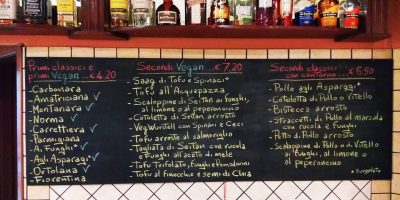 Primi classici e
primi Vegan ... €4.20
- Carbonara
- Amatriciana ✓
- Montanara ✓
- Norma ✓
- Carrettiera ✓
- Parmigiana
- A. Funghi* ✓
- Agli Asparagi* ✓
- Ortolana ✓
- Fiorentina
Secondi Vegan ... €7.20
- Spag di Tofu e Spinaci*
- Tofu all'Acquapazza
- Scaloppine di Seitan ai funghi,
al limone o al peperoncino
- Cotoletta di Seitan arrosto
- VegWurstell con Spinaci e Ceci
- Tofu arrosto al salmoriglio
- Tagliata di Seitan con rucola
e funghi all'aceto di mele
- Tofu Trifolato, Funghi e Pomodorini
- Tofu al finocchio e semi di Chia
Secondi classici
con contorno ... €6.50
- Pollo agli Asparagi*
- Cotoletta di Pollo o Vitello
- Bistecca arrosto
- Straccetti di Pollo al marsala
con rucola e funghi
- Petti di Pollo arrosto
- Scaloppine di Pollo o di Vitello
ai funghi, al limone o
al peperoncino
* Surgelato